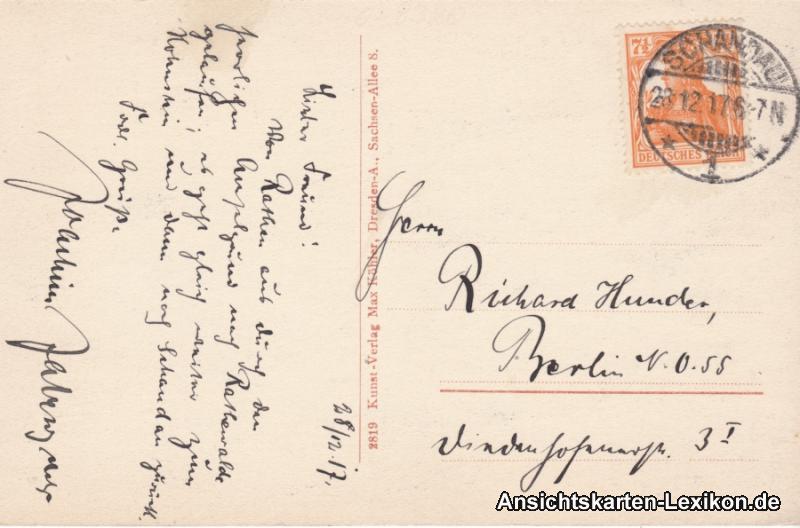 28/12.17.
Lieber Freund!
Von Rathen aus durch den
herrlichen Amselgrund nach Rathewalde
gelaufen; es geht gleich weiter zum
Hohnstein und dann nach Schandau zurück.
Frdl. Grüße
Joachim
2819 Kunst-Verlag Max Köhler, Dresden-A., Sachsen-Allee 8.
7½
DEUTSCHES REICH
SCHANDAU
28.12.17.6-7N
* 1 *
Herrn
Richard Hunder,
Berlin N.O.55
Diedenhofenerstr. 3 I
Ansichtskarten-Lexikon.de